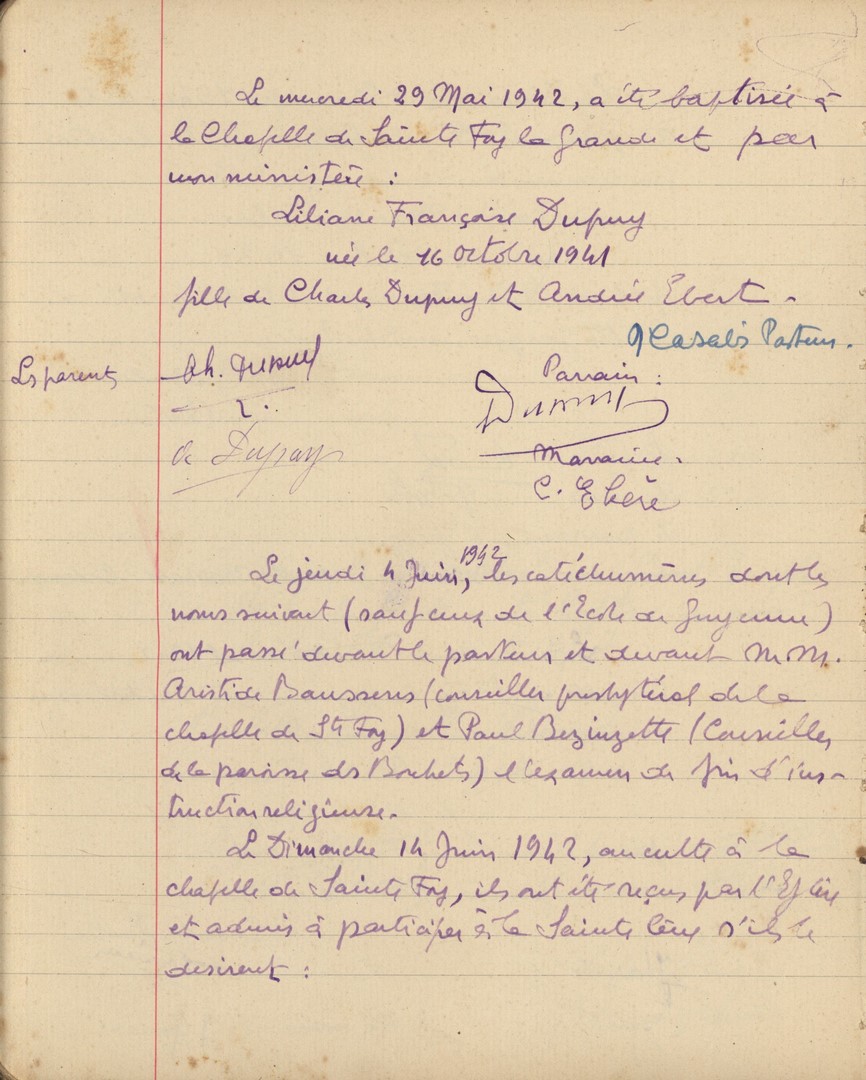 Le mercredi 29 Mai 1942, a été baptisée à
la Chapelle de Sainte Foy la Grande et par
mon ministère :
Liliane Françoise Dupuy
née le 16 Octobre 1941
fille de Charles Dupuy et Andrée Ebert.
Casalis Pasteur.
Les parents
Ch. Dupuy
Parrain :
Dupuy
Marraine.
C. Ebère
Le jeudi 4 Juin, 1942 les catéchumènes dont les
noms suivent (sauf ceux de l'Ecole de Guyenne)
ont passé devant le pasteur et devant M.M.
Aristide Baussens (conseiller presbytéral de la
chapelle de Ste Foy) et Paul Bezinzette (Conseiller
de la paroisse des Bouhets) l'examen de fin d'ins-
truction religieuse.
Le Dimanche 14 Juin 1942, au culte à la
chapelle de Sainte Foy, ils ont été reçus par l'Eglise
et admis à participer à la Sainte Cène s'ils le
désirent :